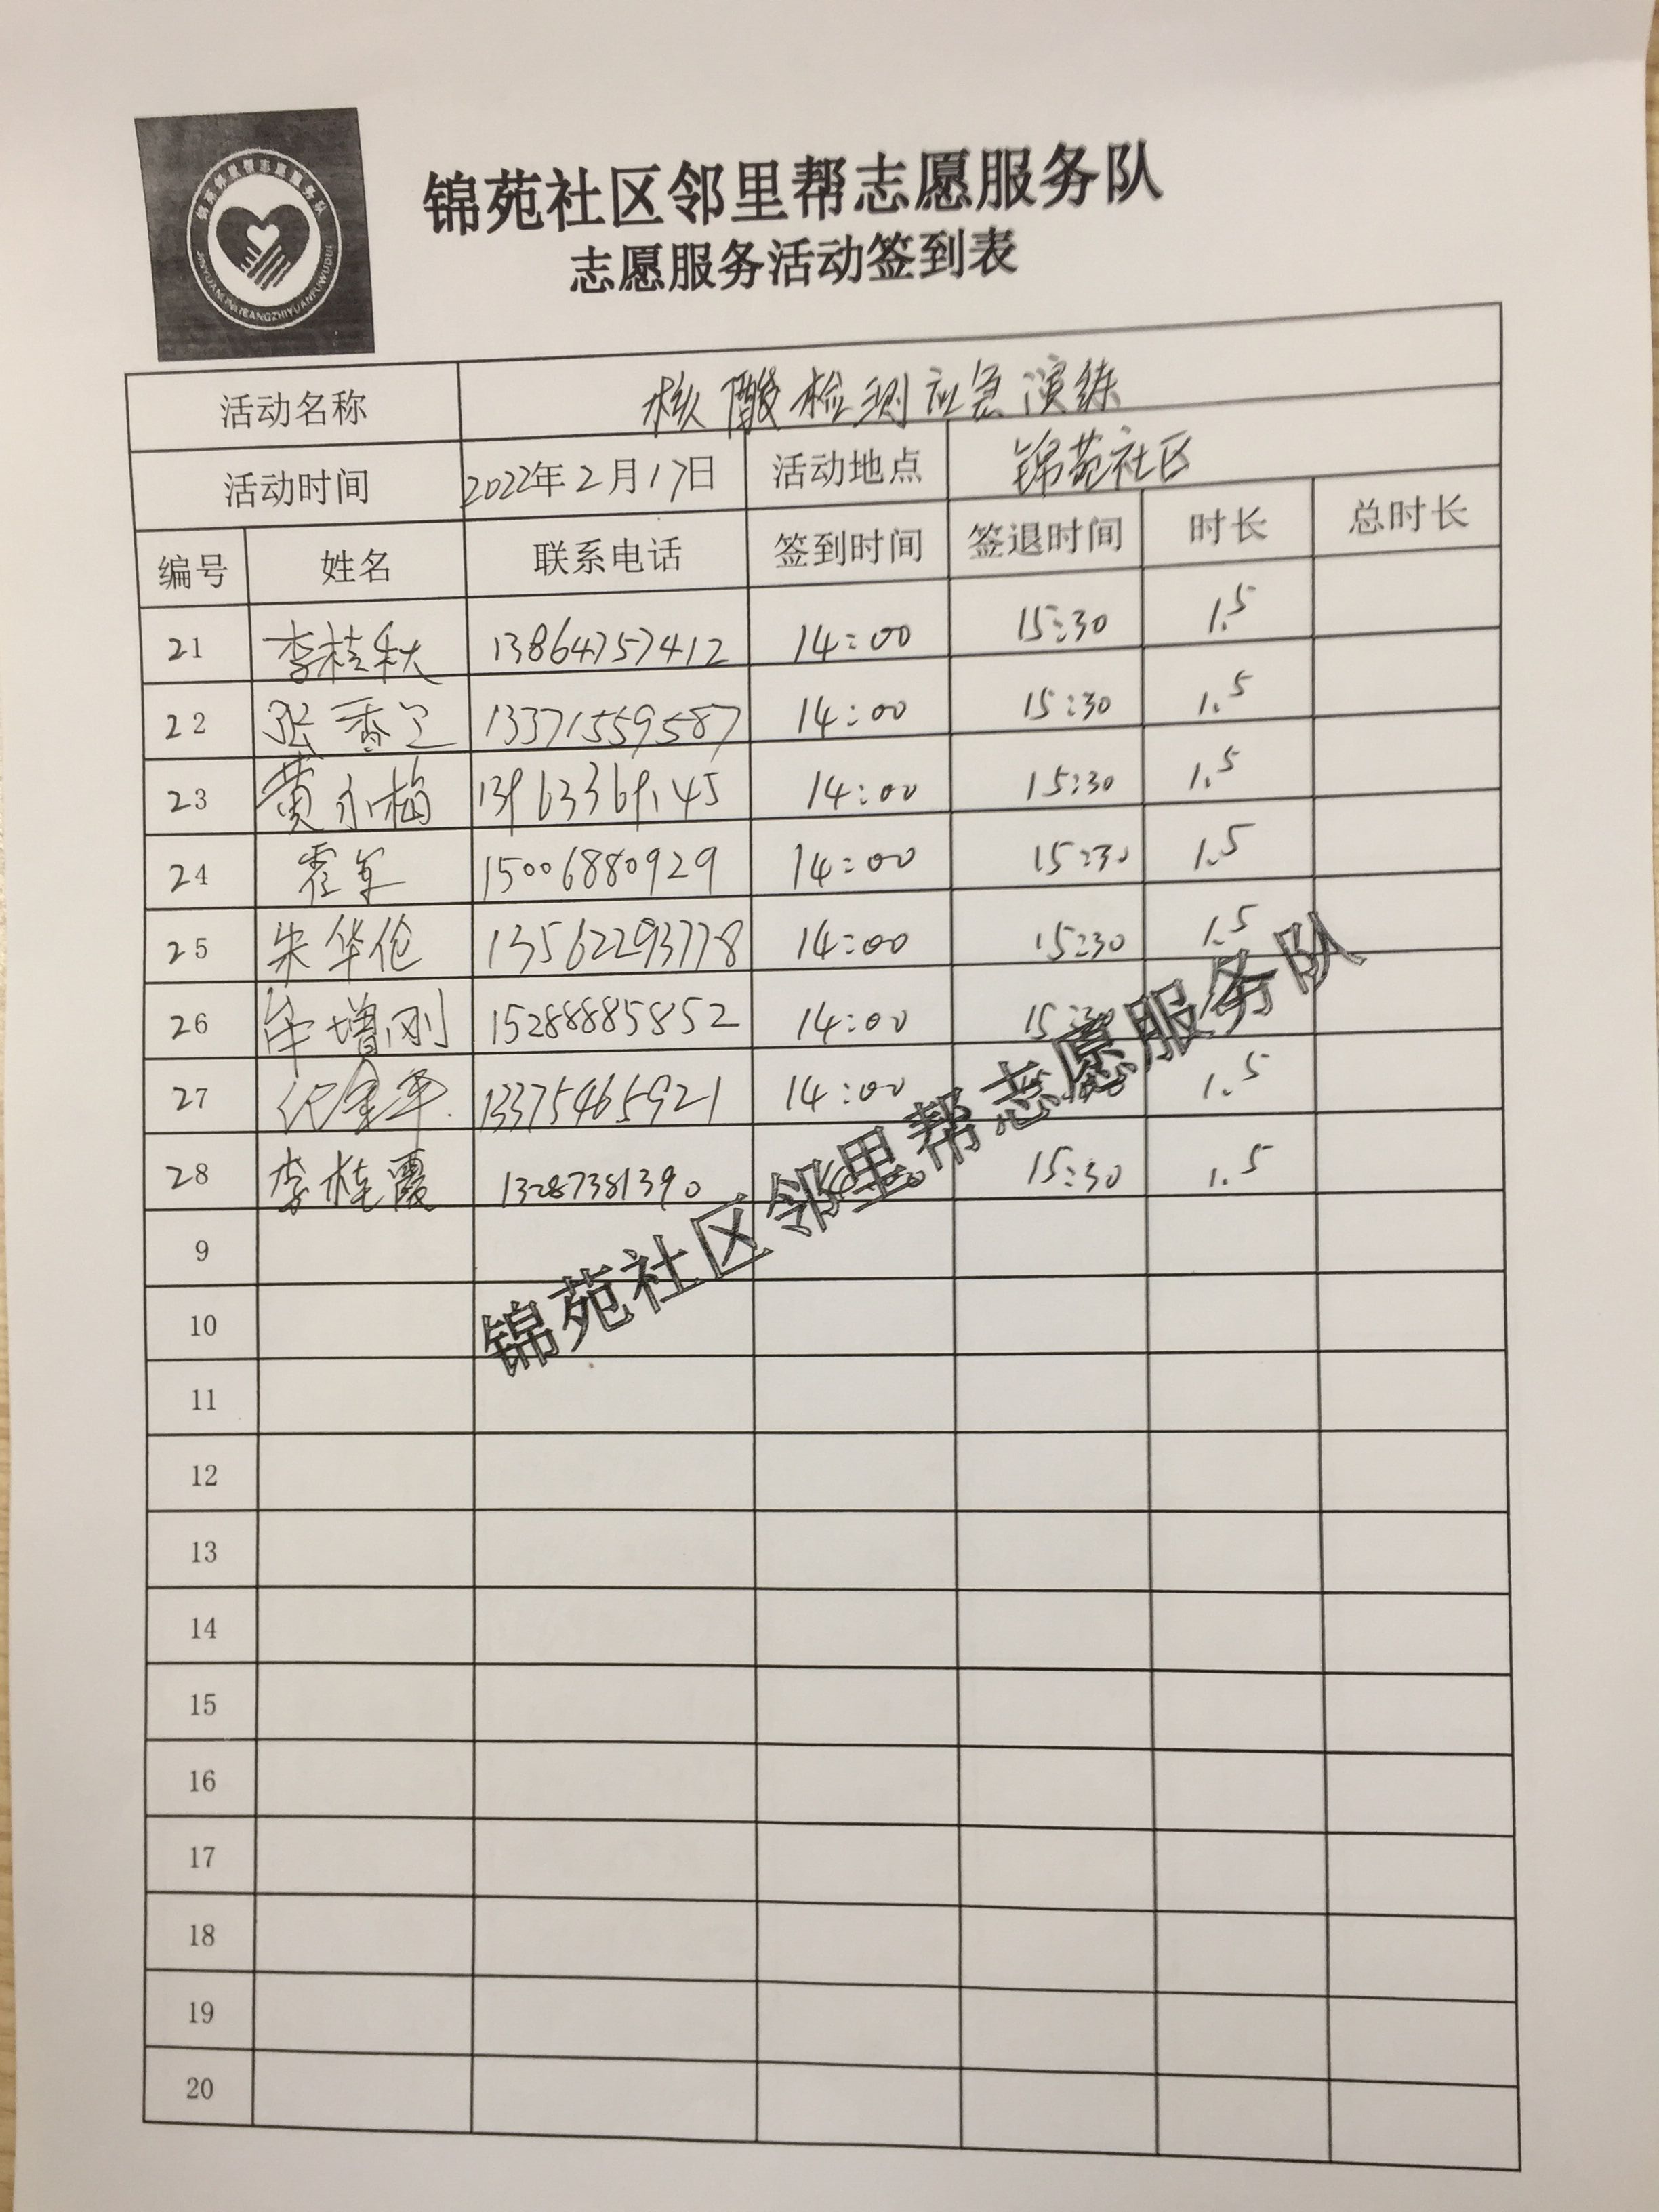 锦苑社区邻里帮志愿服务队
志愿服务活动签到表
活动名称 核酸检测应急演练
活动时间 2022年2月17日 活动地点 锦苑社区
编号 姓名 联系电话 签到时间 签退时间 时长 总时长
21 李桂秋 13864757412 14:00 15:30 1.5
22 张香 13371559587 14:00 15:30 1.5
23 黄永梅 13963369145 14:00 15:30 1.5
24 霍军 15006880929 14:00 15:30 1.5
25 朱华伦 13562293778 14:00 15:30 1.5
26 牟增刚 15288885852 14:00 15:30
27 纪金平 13375465921 14:00 1.5
28 李桂霞 13287381390 15:30 1.5
9
10
11
12
13
14
15
16
17
18
19
20
锦苑社区邻里帮志愿服务队